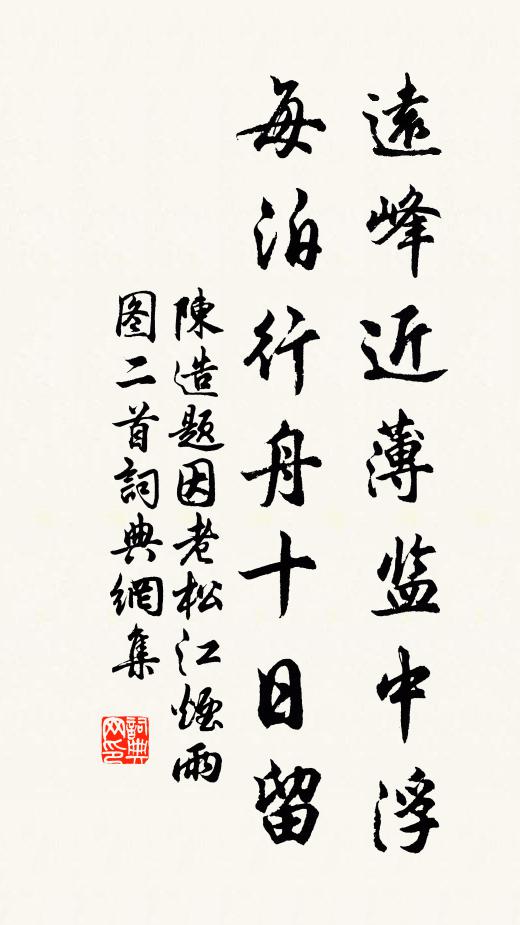 遠峰近薄监中浮
每泊行舟十日留
陳造题因老松江煙雨
图二首詞典網集
詞典网印